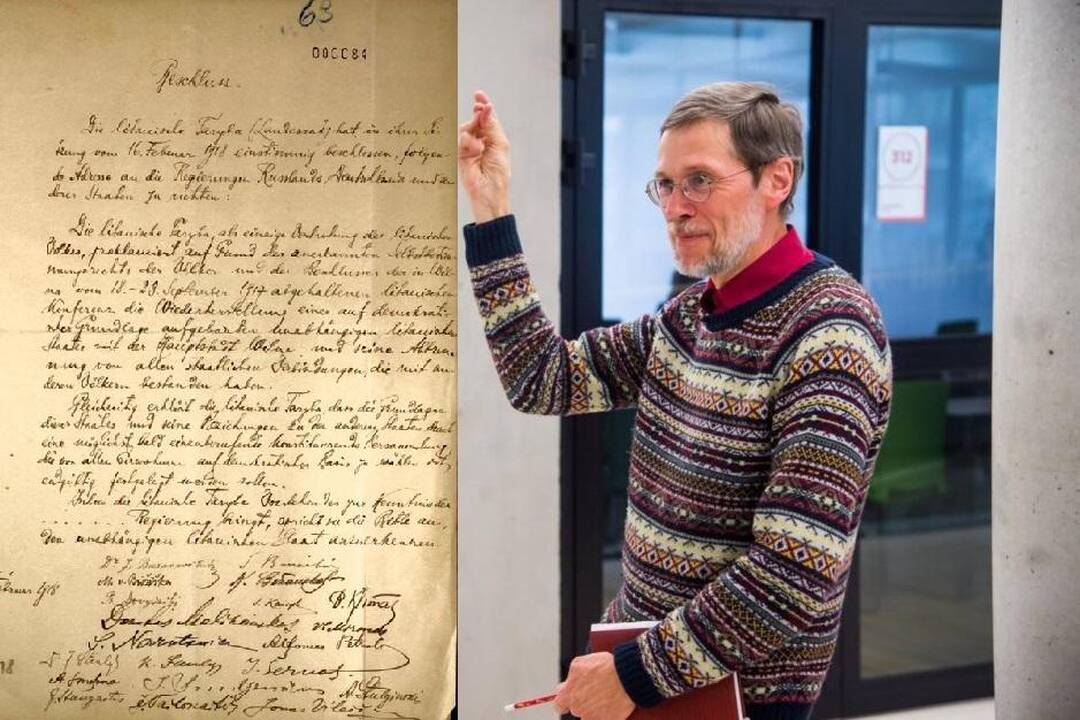 63
000084
Beschluss.
Die litauische Taryba (Landesrat) hat in ihrer Sit-
zung vom 16. Februar 1918 einstimmig beschlossen, folgen-
de Adresse an die Regierungen Russlands, Deutschlands und an-
derer Staaten zu richten:
Die litauische Taryba, als einzige Vertretung des litauischen
Volkes, proklamiert auf Grund des anerkannten
mungsrechts der Völker und des Beschlusses der in Wil-
na vom 18.-23. September 1917 abgehaltenen litauischen
Konferenz die Wiederherstellung eines auf demokrati-
scher Grundlage aufgebauten unabhängigen litauischen
Staates mit der Hauptstadt Wilna und seine Abtren-
nung von allen staatlichen Verbindungen, die mit an-
deren Völkern bestanden haben.
Gleichzeitig erklärt die litauische Taryba, dass die Grundlagen
dieses Staates und seine Beziehungen zu den anderen Staaten
eine möglichst bald einzuberufende konstituierende Versammlung,
die von allen Einwohnern auf demokratischer Basis zu wählen
endgiltig festgelegt werden sollen.
die litauische Taryba zur Kenntnis der
Regierung bringt, spricht sie die Bitte aus,
den unabhängigen litauischen Staat anzuerkennen.
Dr J. Basanavičius S.
M.
P. Dovydaitis
Donatas Malinauskas
S. Narutowicz Alfonsas Petrulis
K. Šaulys J. Šernas
A. Smetona
J. Staugaitis J. Vailokaitis Jonas
312